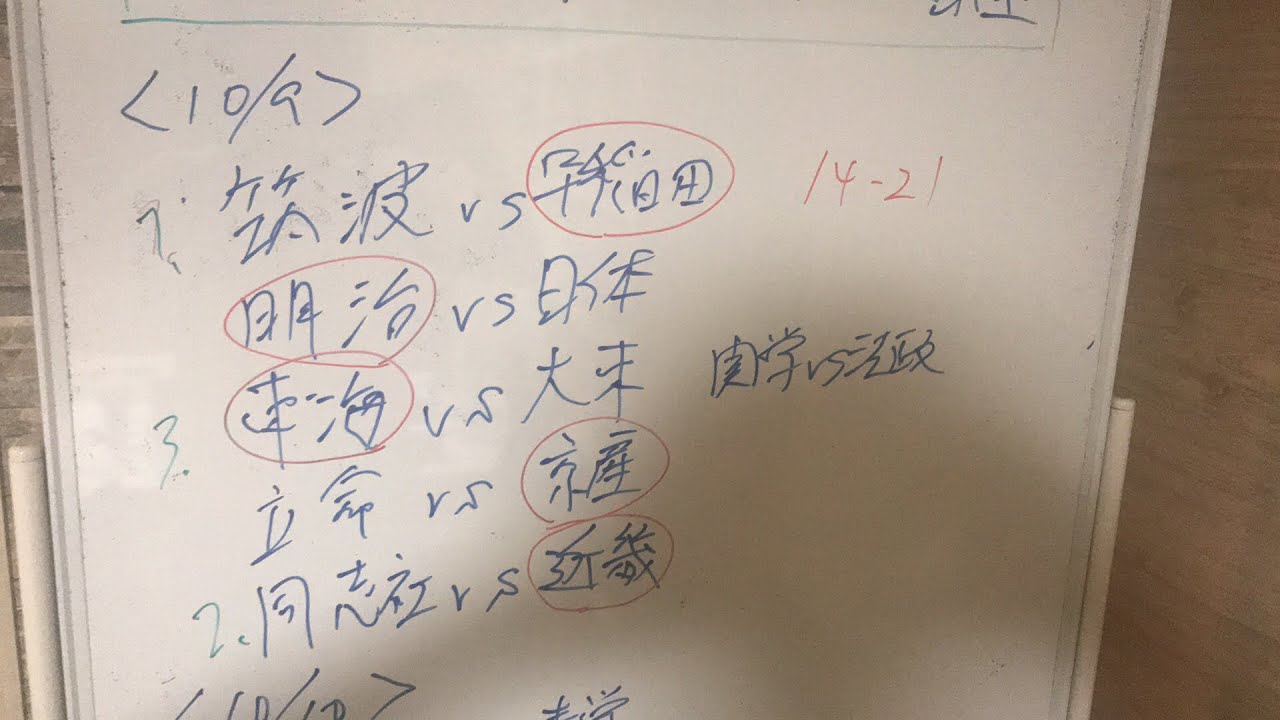 <10/9>
1. 筑波 vs 早稲田 14-21
明治 vs 日体
3. 東海 vs 大東 関学 vs 法政
立命 vs 京産
2. 同志社 vs 近畿
<10/10>